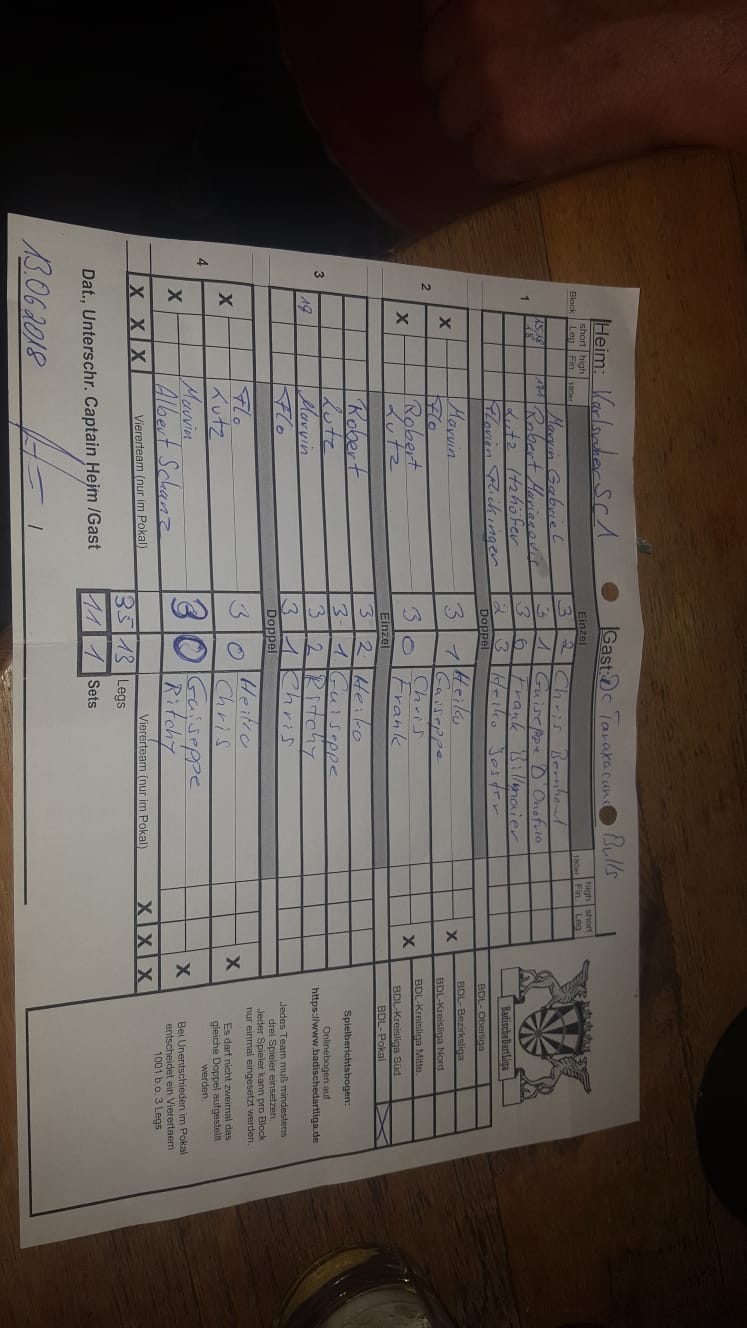 Heim: Karlsruher SC 1 Gast: DC Tarakacane Bulls
Block short Leg high Fin. 180er Einzel 180er high Fin. short Leg
1 Marvin Gabriel 3 2 Chris
15,18 18 171 Robert 3 1 Guiseppe D'Onofrio
Lutz Itzhöfer 3 0 Frank Billmaier
Florin 2 3 Heiko Joster
Doppel
2 X Marvin 3 1 Heiko X
Flo Guiseppe
X Robert 3 0 Chris X
Lutz Frank
Einzel
3 Robert 3 2 Heiko
Lutz 3 1 Guiseppe
19 Marvin 3 2 Ritchy
Flo 3 1 Chris
Doppel
4 X Flo 3 0 Heiko X
Lutz Chris
X Marvin 3 0 Guiseppe X
Albert Schanz Ritchy
X X X Viererteam (nur im Pokal) Viererteam (nur im Pokal) X X X
35 13 Legs
Dat., Unterschr. Captain Heim /Gast 11 1 Sets
13.06.2018 /
BadischeDartLiga
BDL- Oberliga
BDL- Bezirksliga
BDL-Kreisliga Nord
BDL-Kreisliga Mitte
BDL-Kreisliga Süd
BDL- Pokal X
Spielberichtsbogen:
Onlinebogen auf
https://www.badischedartliga.de
Jedes Team muß mindestens
drei Spieler einsetzen.
Jeder Spieler kann pro Block
nur einmal eingesetzt werden.
Es darf nicht zweimal das
gleiche Doppel aufgestellt
werden.
Bei Unentschieden im Pokal
entscheidet ein Vierertaem
1001 b.o. 3 Legs